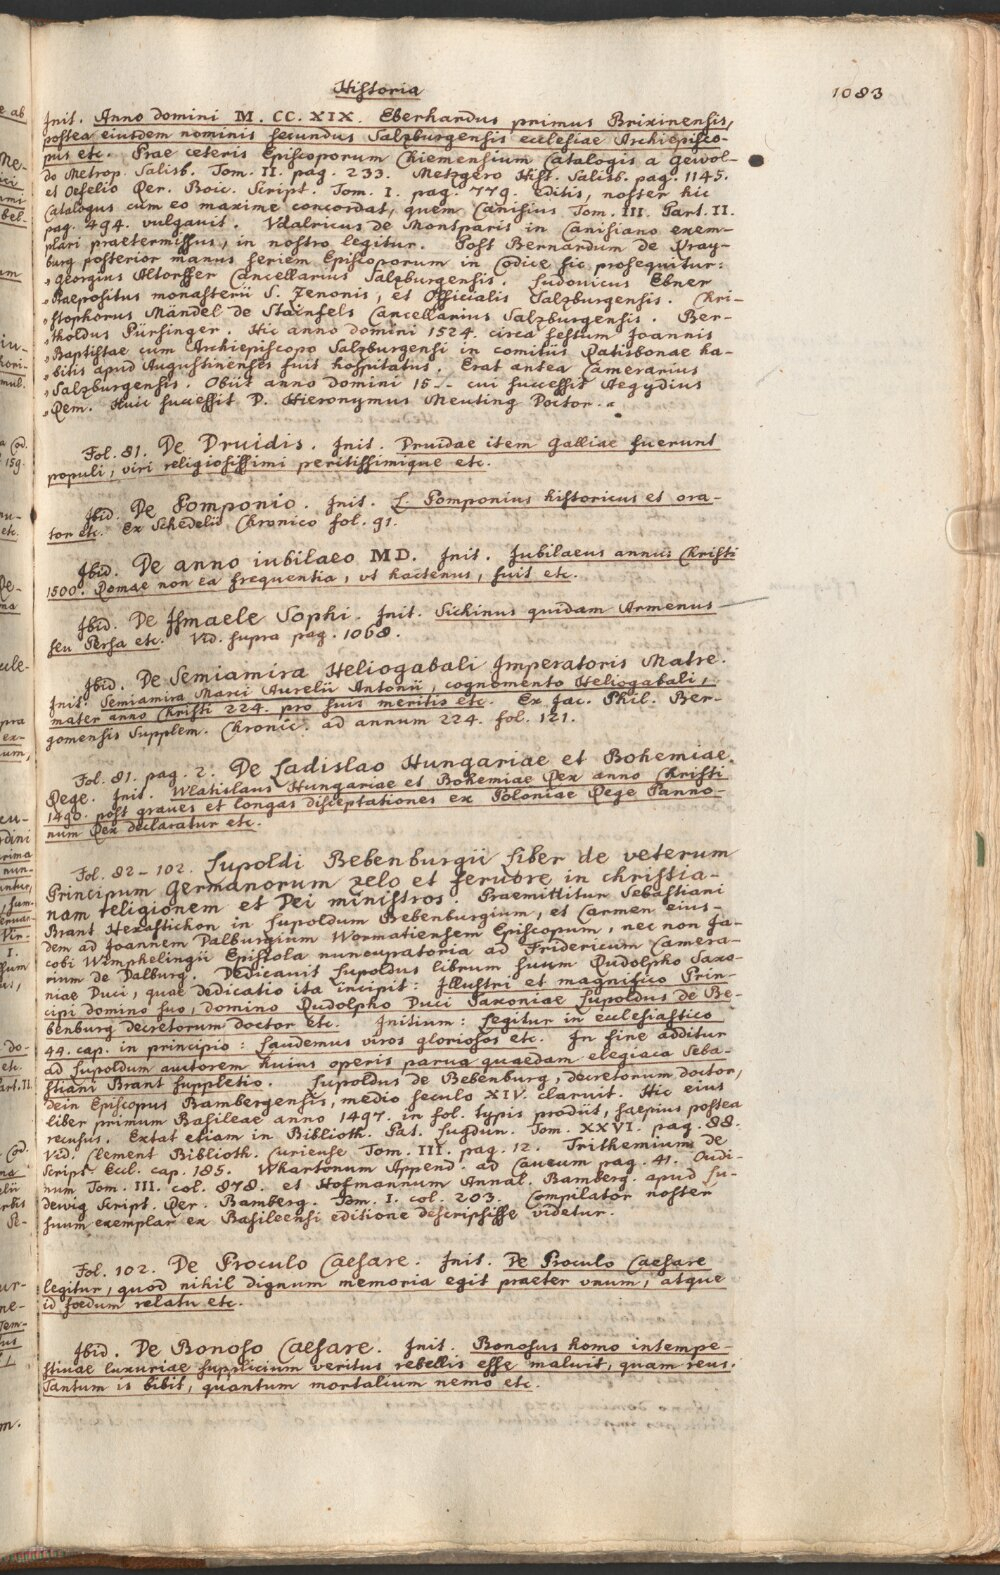 Historia
1083
Init. Anno domini M. CC. XIX. Eberhardus primus Brixinensis,
postea eiusdem nominis secundus Salzburgensis ecclesiae Archiepisco-
pus etc. Prae ceteris Episcoporum Chiemensium Catalogis a Gewol-
do Metrop. Salisb. Tom. II. pag. 233. Metzgero Hist. Salisb. pag. 1145.
et Oefelio Rer. Boic. Script. Tom. I. pag. 779. editis, noster hic
Catalogus cum eo maxime concordat, quem Canisius Tom. III. Part. II.
pag. 494. vulgauit. Vdalricus de Montparis in Canisiano exem-
plari praetermissus, in nostro legitur. Post Bernardum de Kray-
burg posterior manus seriem Episcoporum in Codice sic prosequitur:
„Georgius Altorffer Cancellarius Salzburgensis. Ludovicus Ebner
„Praepositus monasterii S. Zenonis, et Officialis Salzburgensis. Chri-
„stophorus Mandel de Stainfels Cancellarius Salzburgensis. Ber-
„tholdus Pürsinger. Hic anno domini 1524. circa festum Joannis
„Baptistae cum Archiepiscopo Salzburgensi in comitiis Ratisbonae ha-
„bitis apud Augustinenses fuit hospitatus. Erat antea Camerarius
„Salzburgensis. Obiit anno domini 15-- cui successit Aegydius
„Rem. Huic successit D. Hieronymus Meuting Doctor. "
Fol. 81. De Druidis. Init. Druidae item Galliae fuerunt
populi, viri religiosissimi peritissimique etc.
Ibid. De Pomponio. Init. L. Pomponius historicus et ora-
tor etc. Ex Schedelii Chronico fol. 91.
Ibid. De anno iubilaeo MD. Init. Jubilaeus annus Christi
1500. Romae non ea frequentia, vt hactenus, fuit etc.
Ibid. De Ismaele Sophi. Init. Sichinus quidam Armenus
seu Persa etc. Vid. supra pag. 1068.
Ibid. De Semiamira Heliogabali Imperatoris Matre.
Init. Semiamira Marci Aurelii Antonii, cognomento Heliogabali,
mater anno Christi 224. pro suis meritis etc. Ex Jac. Phil. Ber-
gomensis Supplem. Chronic. ad annum 224. fol. 121.
Fol. 81. pag. 2. De Ladislao Hungariae et Bohemiae
Rege. Init. Wlatislaus Hungariae et Bohemiae Rex anno Christi
1490. post graues et longas disceptationes ex Poloniae Rege Panno-
num Rex declaratur etc.
Fol. 82-102. Lupoldi Bebenburgii Liber de veterum
Principum Germanorum zelo et feruore in christia-
nam religionem et Dei ministros. Praemittitur Sebastiani
Brant Hexastichon in Lupoldum Bebenburgium, et Carmen eius-
dem ad Joannem Dalburgium Wormatiensem Episcopum, nec non Ja-
cobi Wimphelingii Epistola nuncupatoria ad Fridericum Camera-
rium de Dalburg. Dedicauit Lupoldus librum suum Rudolpho Saxo-
niae Duci, quae dedicatio ita incipit: Illustri et magnifico Prin-
cipi domino suo, domino Rudolpho Duci Saxoniae Lupoldus de Be-
benburg decretorum doctor etc. Initium: Legitur in ecclesiastico
44. cap. in principio: Laudemus viros gloriosos etc. In fine additur
ad Lupoldum auctorem huius operis parua quaedam elegiaca Seba-
stiani Brant suppletio. Lupoldus de Bebenburg, decretorum doctor,
dein Episcopus Bambergensis, medio seculo XIV. claruit. Hic eius
liber primum Basileae anno 1497. in fol. typis prodiit, saepius postea
recusus. Extat etiam in Biblioth. Pat. Lugdun. Tom. XXVI. pag. 88.
Vid. Clement Biblioth. Curieuse Tom. III. pag. 12. Trithemium de
Script. Eccl. cap. 185. Whartonum Append. ad Caueum pag. 41. Oudi-
num Tom. III. col. 878. et Hofmannum Annal. Bamberg. apud Lu-
dewig Script. Rer. Bamberg. Tom. I. col. 203. Compilator noster
suum exemplar ex Basileensi editione descripsisse videtur.
Fol. 102. De Proculo Caesare. Init. De Proculo Caesare
legitur, quod nihil dignum memoria egit praeter vnum, atque
id foedum relatu etc.
Ibid. De Bonoso Caesare. Init. Bonosus homo intempe-
stiuae luxuriae supplicium veritus rebellis esse maluit, quam reus.
Tantum is bibit, quantum mortalium nemo etc.